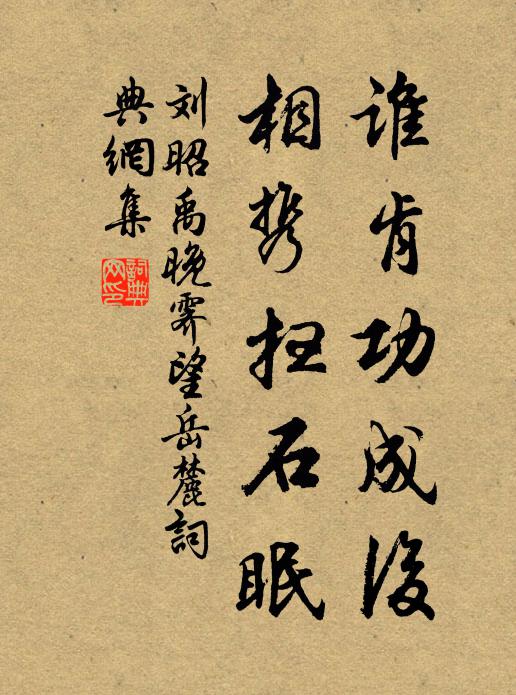 谁肯功成後
相携扫石眠
刘昭禹晚霁望岳麓詞
典網集
詞典
网印